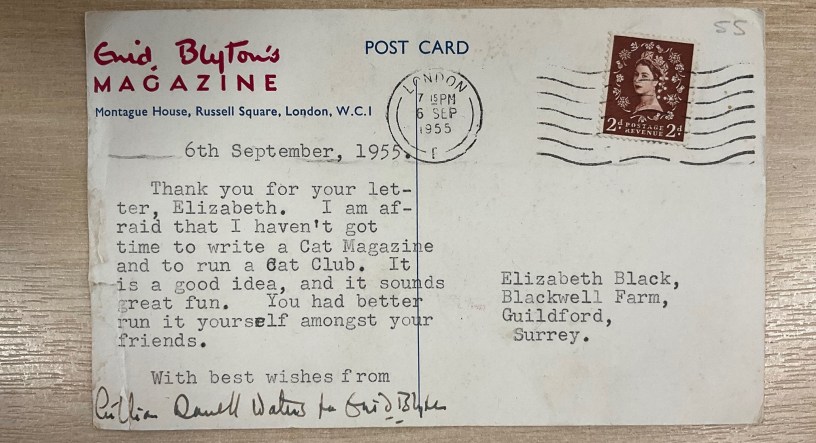 Enid Blyton's
MAGAZINE
Montague House, Russell Square, London, W.C.1
POST CARD
55
LONDON
7 15PM
6 SEP
1955
2d POSTAGE 2d
REVENUE
6th September, 1955.
Thank you for your let-
ter, Elizabeth. I am af-
raid that I haven't got
time to write a Cat Magazine
and to run a Cat Club. It
is a good idea, and it sounds
great fun. You had better
run it yourself amongst your
friends.
With best wishes from
Enid Blyton
Elizabeth Black,
Blackwell Farm,
Guildford,
Surrey.